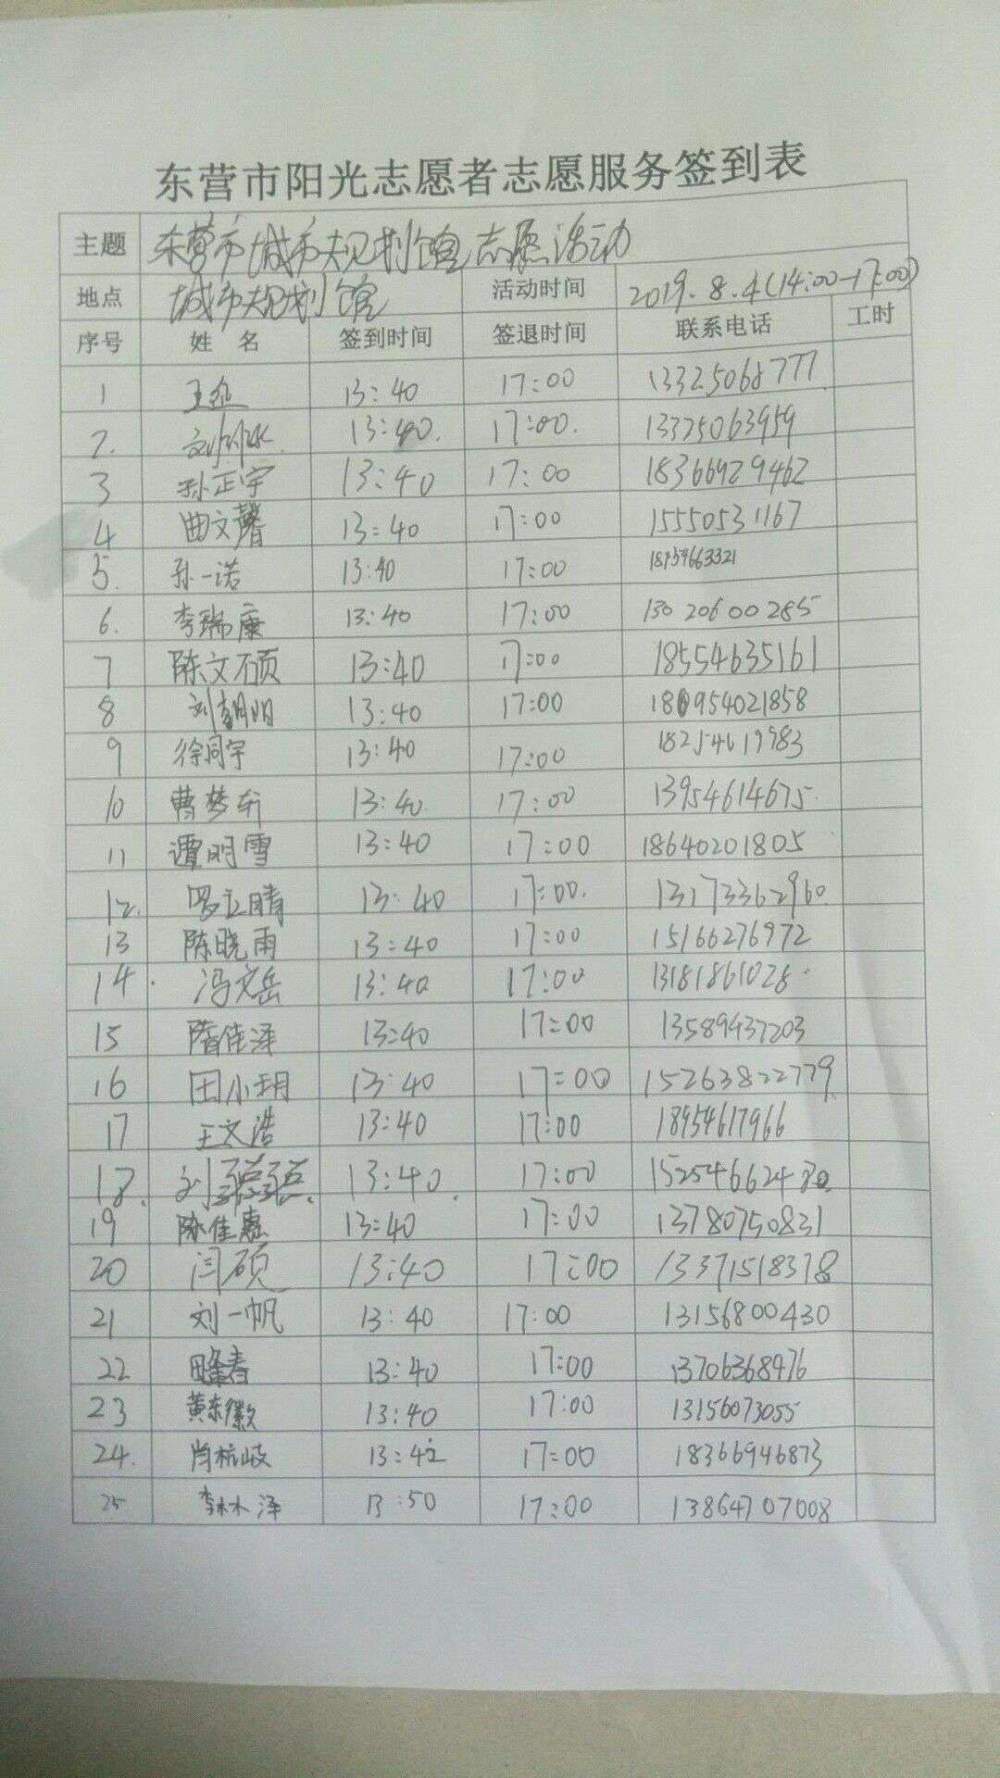 东营市阳光志愿者志愿服务签到表
主题 东营市城市规划馆志愿活动
地点 城市规划馆 活动时间 2019.8.4(14:00-17:00)
序号 姓名 签到时间 签退时间 联系电话 工时
1 13:40 17:00 13325068777
2. 13:40. 17:00. 13325063959
3 孙正宇 13:40 17:00 18366929462
4 曲文馨 13:40 17:00 15550531167
5. 孙一诺 13:40 17:00
6. 李瑞康 13:40 17:00 13020600285
7 陈文硕 13:40 17:00 18554635161
8 刘朝阳 13:40 17:00
9 徐同宇 13:40 17:00 18254619983
10 曹梦轩 13:40. 17:00 13954614675.
11 谭明雪 13:40 17:00 18640201805
12. 罗立晴 13:40 17:00. 13173362960
13 陈晓雨 13:40 17:00 15166276972
14. 冯文岳 13:40 17:00 13181861028.
15 隋佳泽 13:40 17:00 13589437203
16 田小玥 13:40 17:00 15263822779
17 王文浩 13:40 17:00 18954617966
18. 13:40. 17:00
19 陈佳惠 13:40 17:00 13780750831
20 闫硕 13:40 17:00 13371518378
21 刘一帆 13:40 17:00 13156800430
22 13:40 17:00 13706368476
23 黄东徽 13:40 17:00 13156073055
24. 肖杭岐 13:42 17:00 18366946873
25 李林泽 13:50 17:00 13864707008